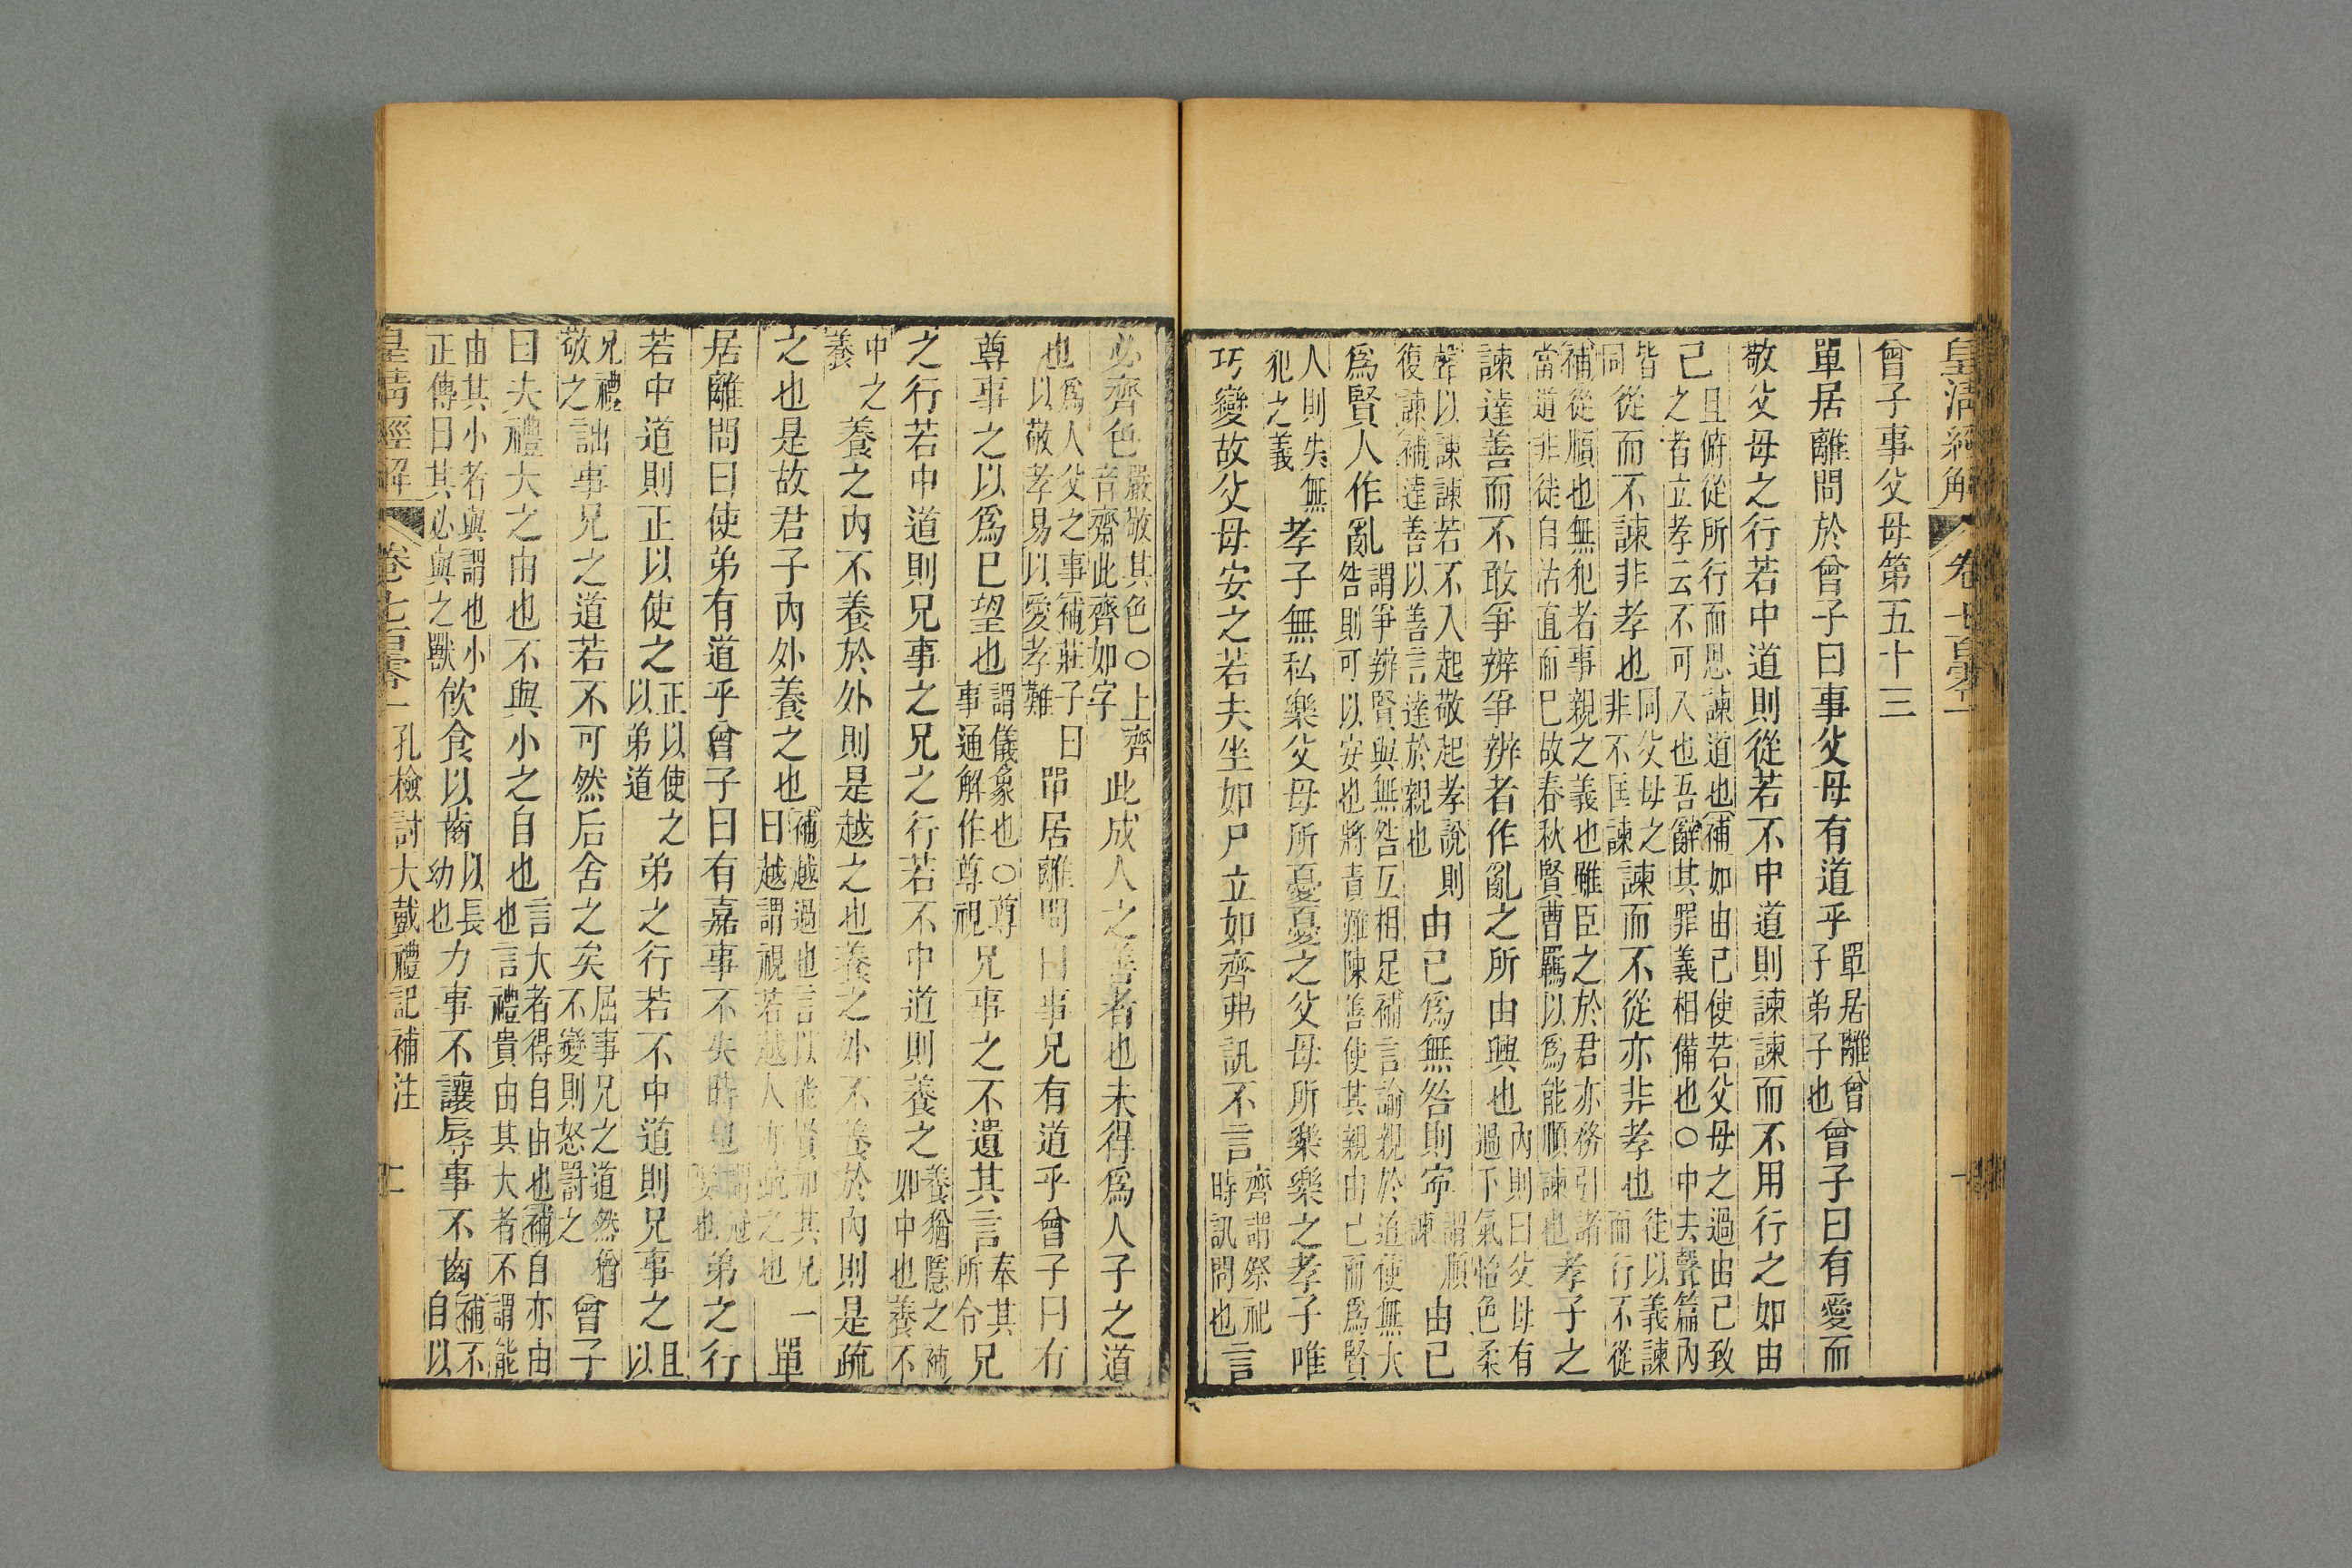 皇清經解 卷七百零一 一
曾子事父母第五十三
單居離問於曾子曰事父母有道乎單居離曾子弟子也曾子曰有愛而
敬父母之行若中道則從若不中道則諫諫而不用行之如由
己且俯從所行而思諫道也補如由己使若父母之過由己致之者立孝云不可入也吾辭其罪義相備也○中去聲篇內
皆同從而不諫非孝也同父母之非不匡諫諫而不從亦非孝也徒以義諫而行不從
補從順也無犯者事親之義也雖臣之於君亦務引諸當道非徒自沽直而已故春秋賢曹羈以為能順諫也孝子之
諫達善而不敢爭辨爭辨者作亂之所由興也內則曰父母有過下氣怡色柔
聲以諫諫若不入起敬起孝說則復諫補達善以善言達於親也由己為無咎則寧謂順諫由己
為賢人作亂謂爭辨賢與無咎互相足補言諭親於道使無大咎則可以安也將責難陳善使其親由己而為賢
人則失無犯之義孝子無私樂父母所憂憂之父母所樂樂之孝子唯
巧變故父母安之若夫坐如尸立如齊弗訊不言齊謂祭祀時訊問也言
必齊色嚴敬其色○上齊音齋此齊如字此成人之善者也未得為人子之道
也為人父之事補莊子曰以敬孝易以愛孝難單居離問曰事兄有道乎曾子曰有
尊事之以為己望也謂儀象也○尊事通解作尊視兄事之不遺其言奉其所令兄
之行若中道則兄事之兄之行若不中道則養之養猶隱之補如中也養不
中之養養之內不養於外則是越之也養之外不養於內則是疏
之也是故君子內外養之也補越過也言以能賢如其兄一曰越謂視若越人亦疏之也單
居離問曰使弟有道乎曾子曰有嘉事不失時也謂冠娶也弟之行
若中道則正以使之正以使之以弟道弟之行若不中道則兄事之且以
兄禮敬之詘事兄之道若不可然后舍之矣屈事兄之道然猶不變則怒罰之曾子
曰夫禮大之由也不與小之自也言大者得自由也補自亦由也言禮貴由其大者不謂能
由其小者與謂也小正傳曰其必與之獸飲食以齒以長幼也力事不讓辱事不齒補不自以
皇清經解 卷七百零一 孔檢討大戴禮記補注 二